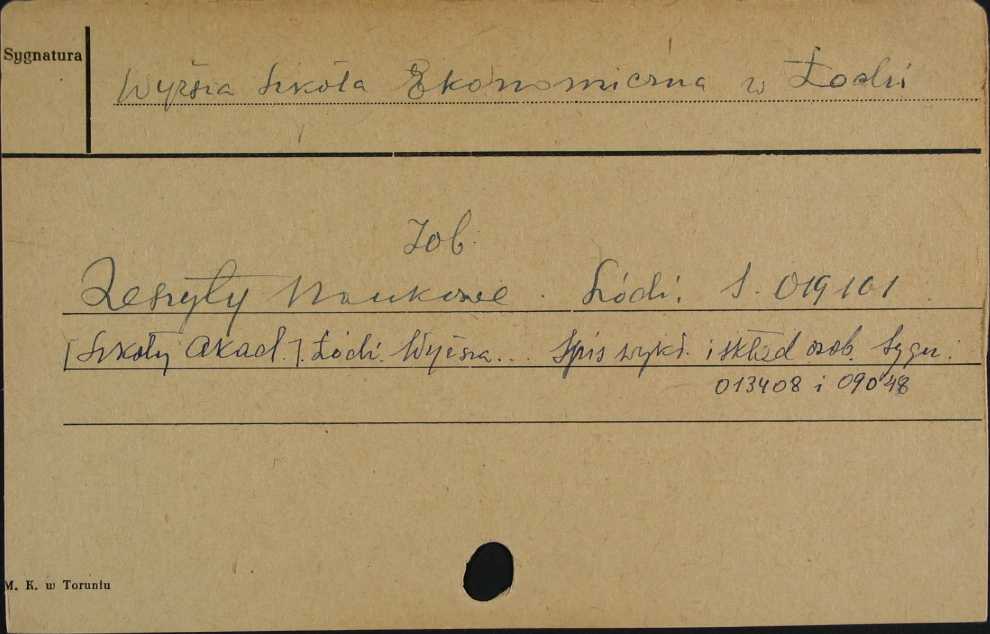 Sygnatura
Wyższa Szkoła Ekonomiczna w Łodzi
Zob.
Zeszyty Naukowe. Łódź. S. 019101
[Szkoły Akad.]. Łódź. Wyższa... Spis wykł. i skład osob. Sygn.
013408 i 09048
M. K. w Toruniu